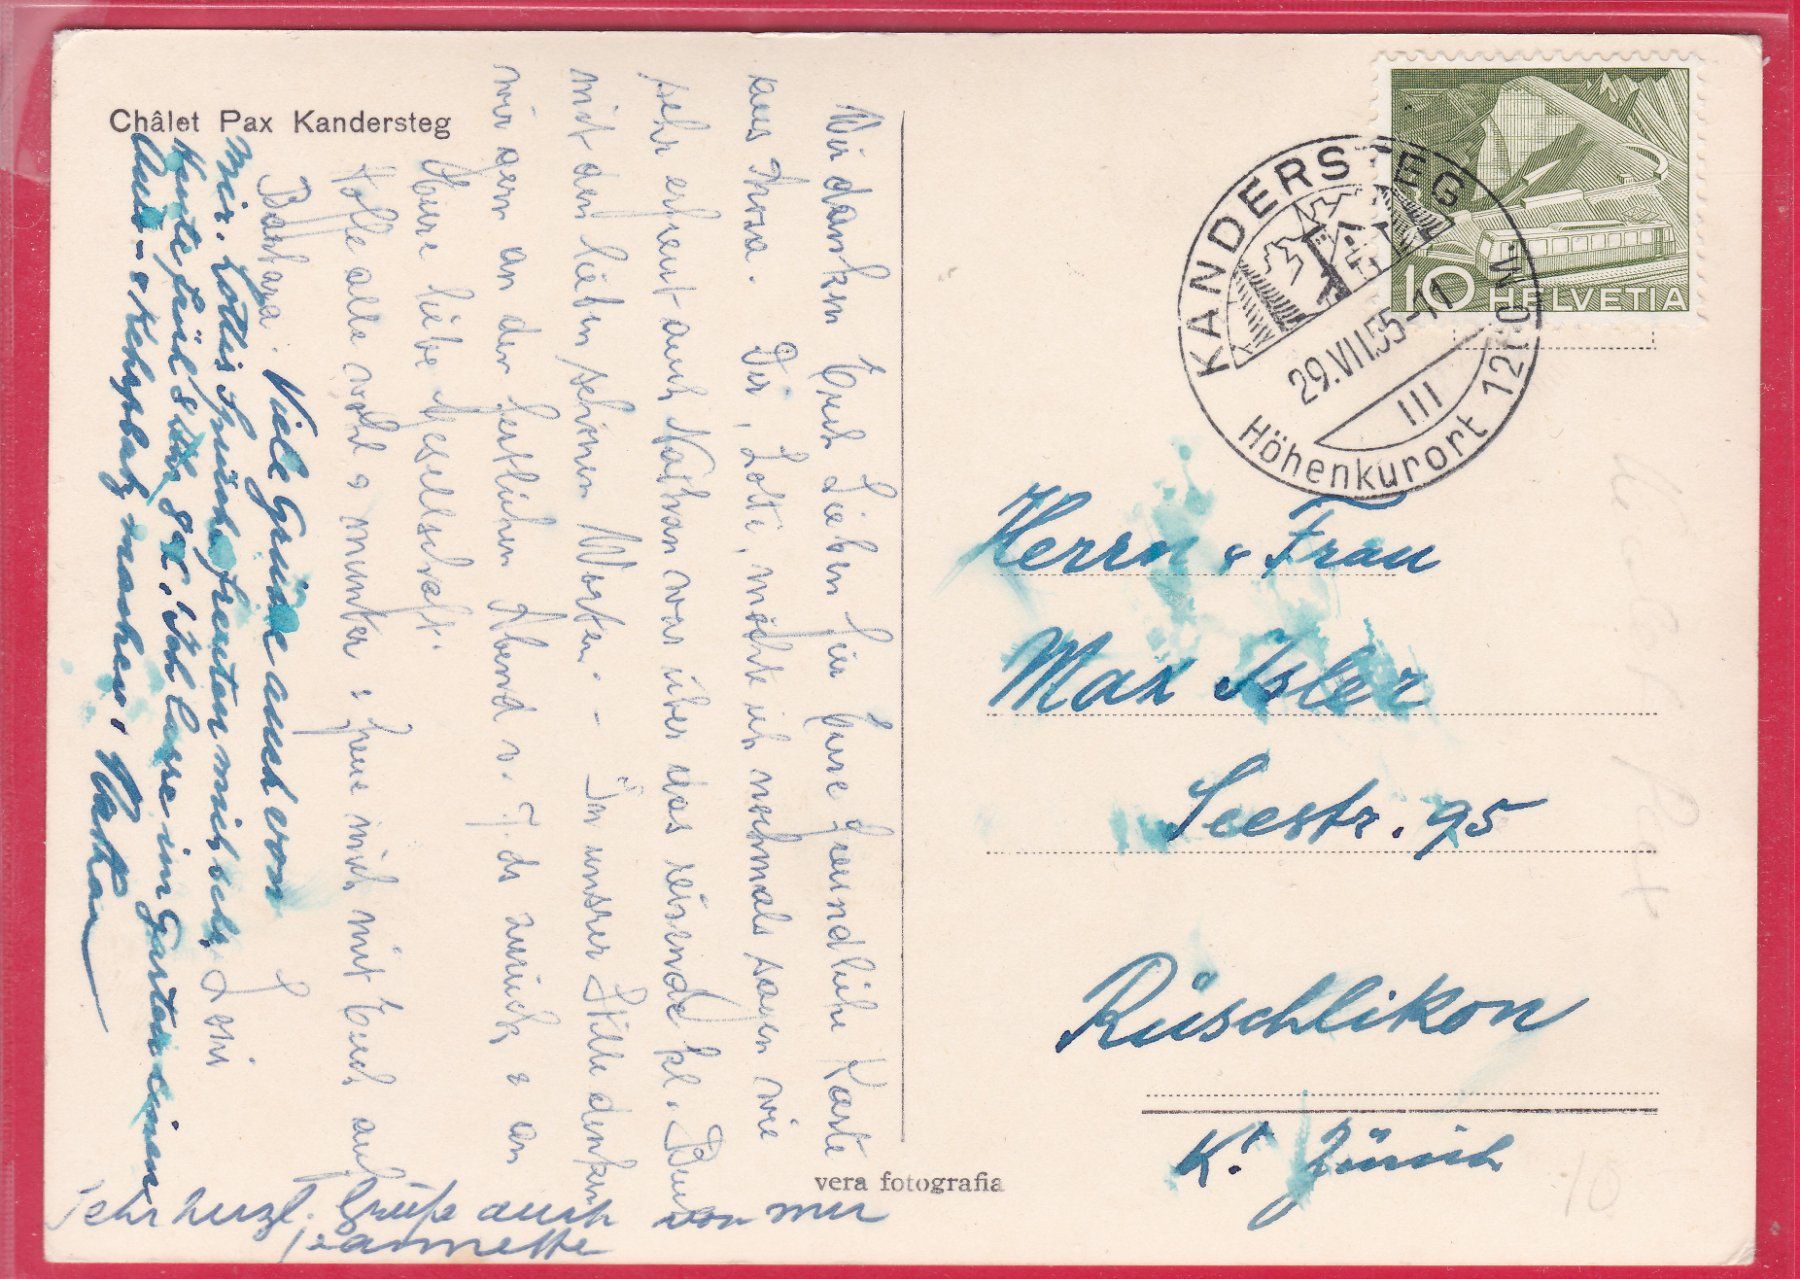 Châlet Pax Kandersteg
Wir danken Euch Lieben für Eure freundliche Karte
aus Ihrsa. Dir, Lotti, möchte ich nochmals sagen wie
sehr erfreut auch Nathan war über das reisende kl. Buch
mit den lieben schönen Worten. – In unsrer Stille denken
wir gern an den festlichen Abend v. 7. ds zurück & an
Eure liebe Gesellschaft.
alle wohl & munter & freue mich mit Euch auf
Barbara.
Viele Grüsse auch von
Mir. Lottis Sprüche freuten mich sehr.
Leni
Heute früh
Ich lasse im Garten einen
machen. Nathan
Sehr herzl. Grüße auch von mir
Jeannette
vera fotografia
10 HELVETIA
KANDERSTEG
29.VII.55-11
III
Höhenkurort 1200 M.
Herrn & Frau
Max Isler
Seestr. 95
Rüschlikon
Kt. Zürich